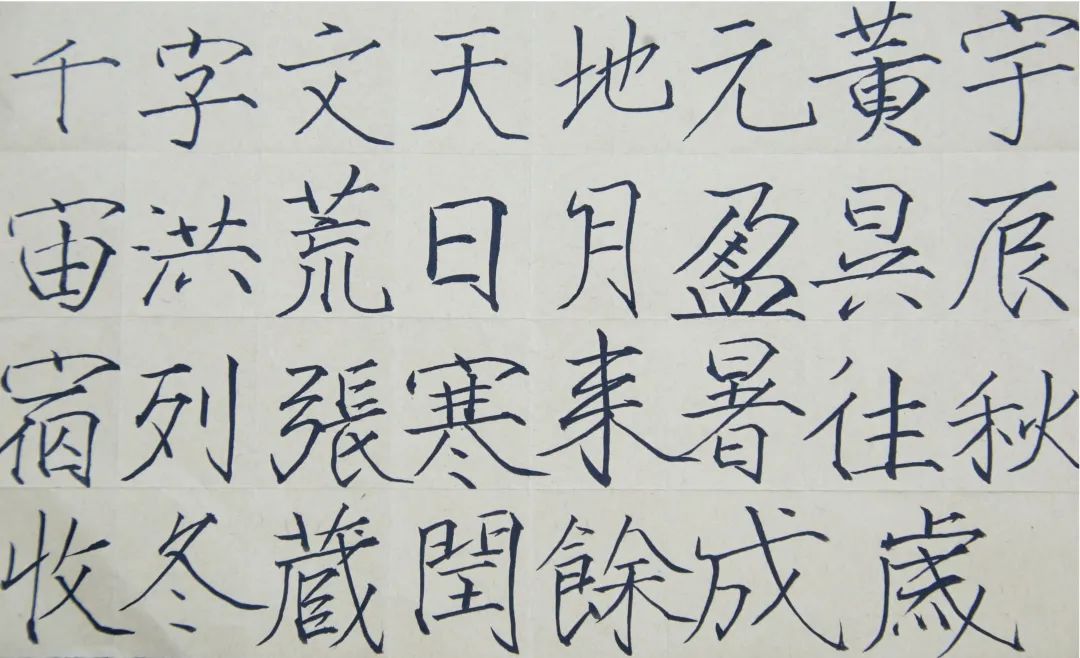 千字文天地元黃宇
宙洪荒日月盈昃辰
宿列張寒来暑往秋
收冬蔵閏餘成歲